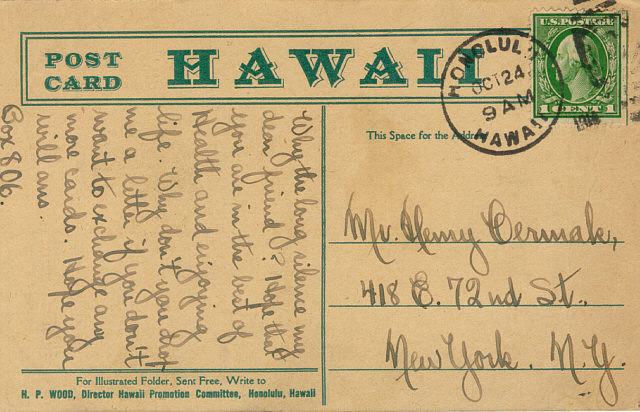 POST
CARD
HAWAII
U.S. POSTAGE
1 CENT 1
HONOLULU
OCT 24
9 AM
HAWAII
Why the long silence my
dear friend? Hope that
you are in the best of
Health and enjoying
life. Why don't you drop
me a little if you don't
want to exchange any
more cards. Hope you
will ans.
Box 806.
This Space for the Address
Mr. Henry Cermak,
418 E. 72nd St.,
New York. N.Y.
For Illustrated Folder, Sent Free, Write to
H. P. WOOD, Director Hawaii Promotion Committee, Honolulu, Hawaii